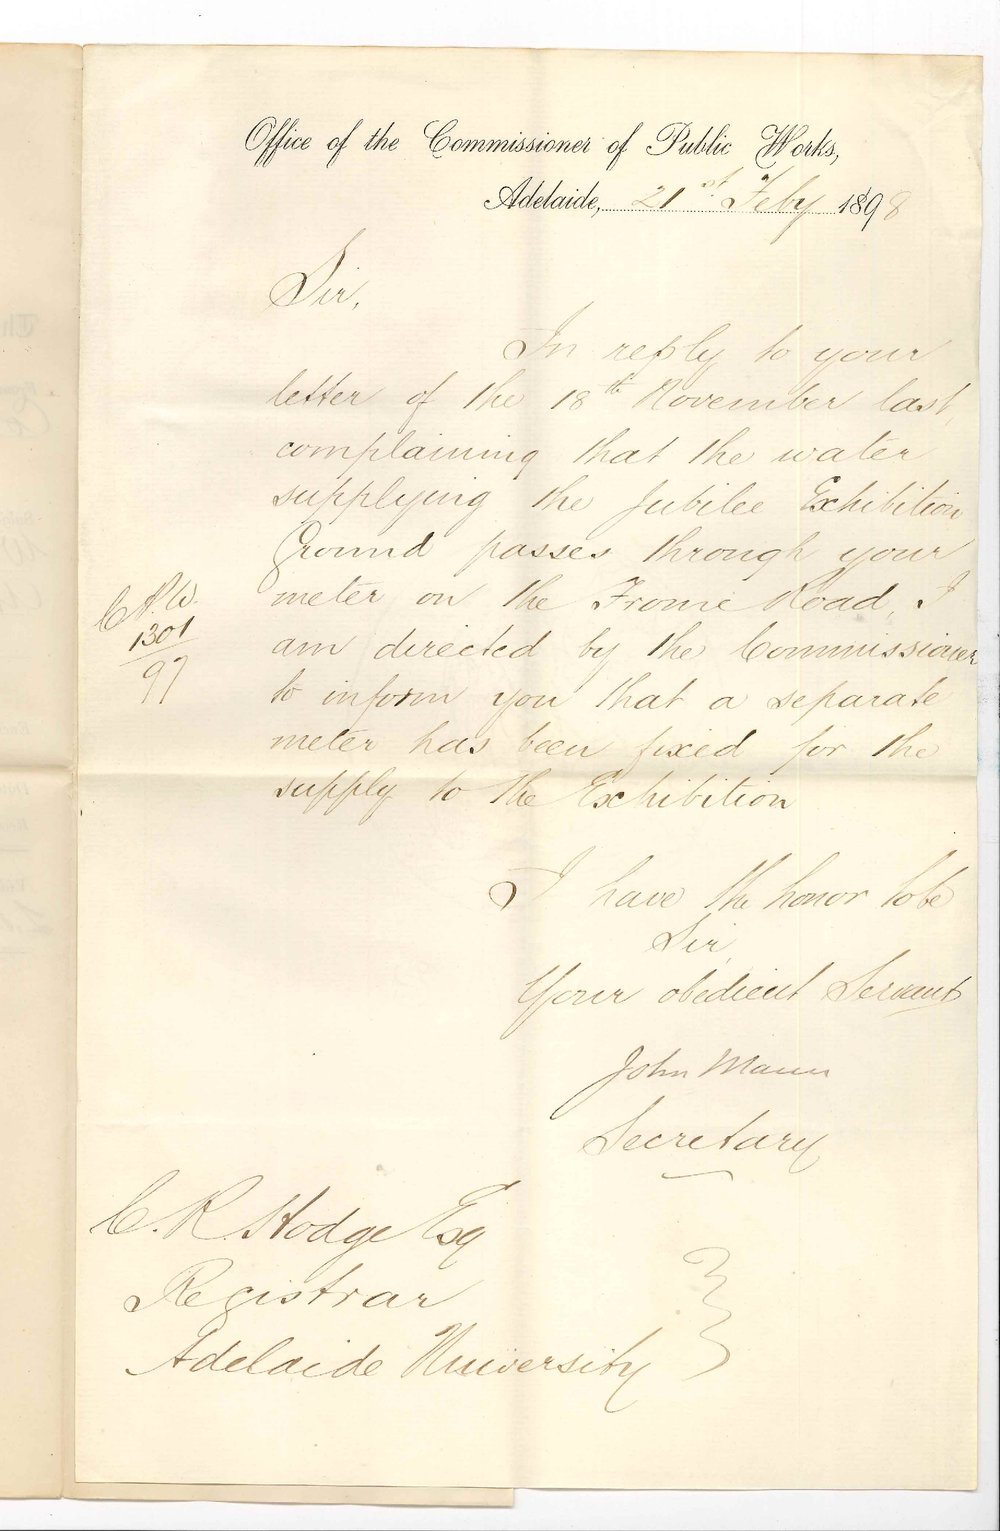 Office of the Commissioner of Public Works,
Adelaide, 21st Feby 1898
Sir,
In reply to your
letter of the 18th November last,
complaining that the water
supplying the Jubilee Exhibition
Ground passes through your
meter on the Frome Road, I
am directed by the Commissioner
to inform you that a separate
meter has been fixed for the
supply to the Exhibition
C.P.W.
1301
97
I have the honor to be
Sir,
Your obedient Servant
John Mann
Secretary
C. R. Hodge Esq
Registrar
Adelaide University